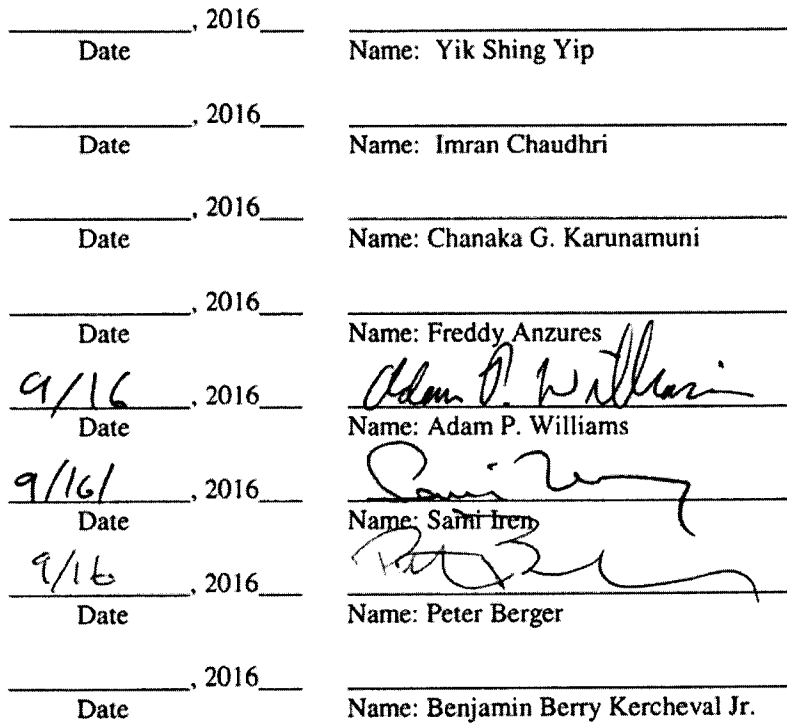 , 2016
Date Name: Yik Shing Yip
, 2016
Date Name: Imran Chaudhri
, 2016
Date Name: Chanaka G. Karunamuni
, 2016
Date Name: Freddy Anzures
9/16, 2016 Adam P. Williams
Date Name: Adam P. Williams
9/16/, 2016 Sami
Date Name: Sami Iren
9/16, 2016
Date Name: Peter Berger
, 2016
Date Name: Benjamin Berry Kercheval Jr.